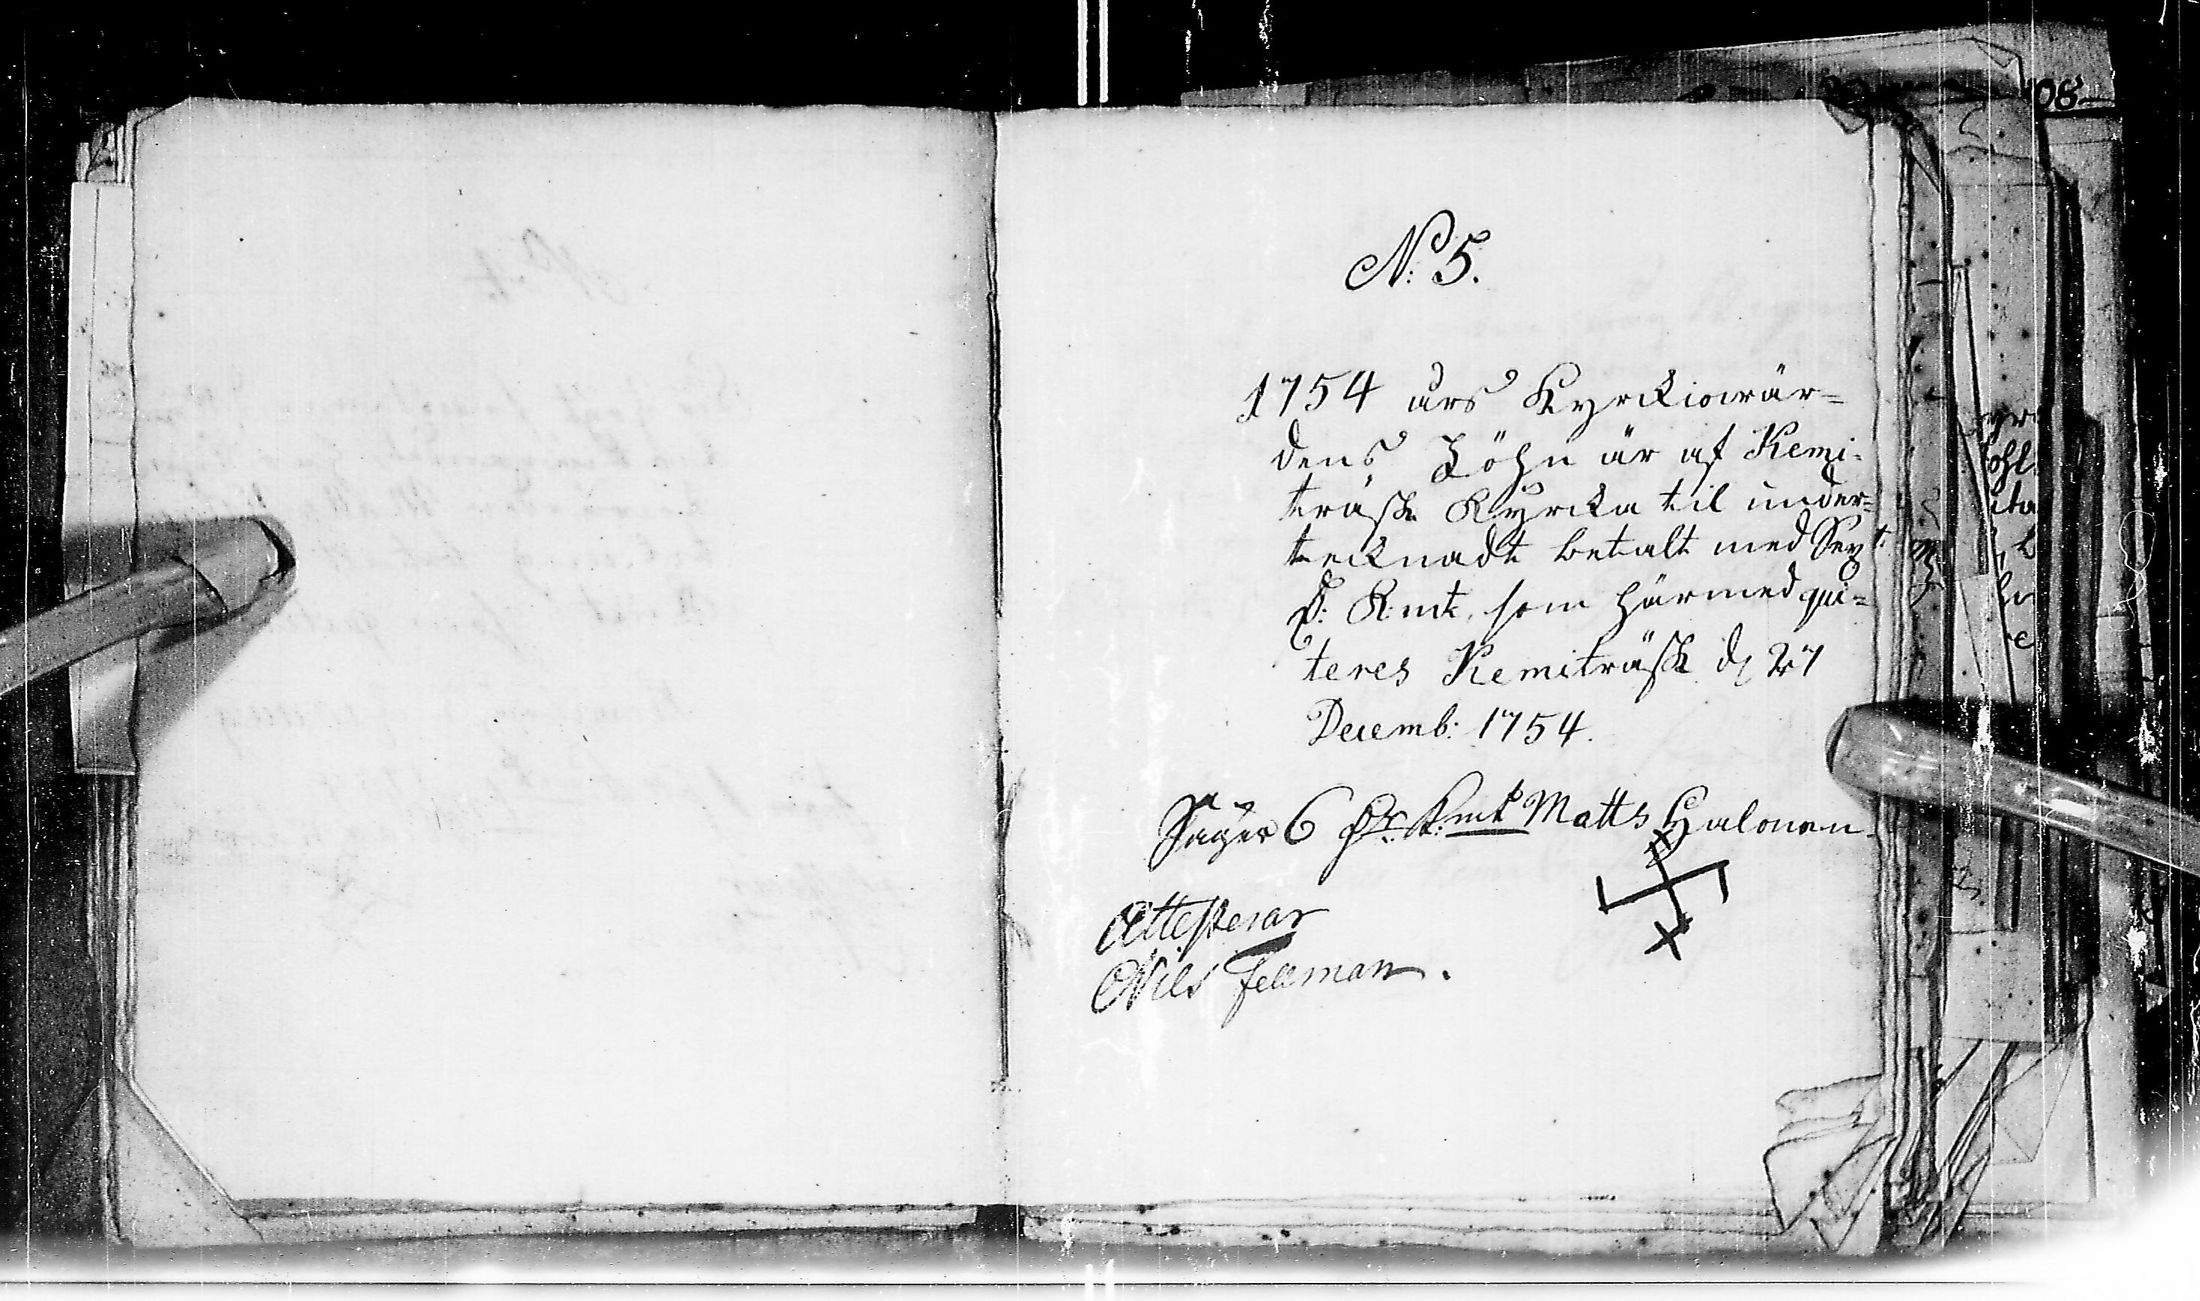 N: 5.
1754 års Kyrkiowär=
dens Löhn är af Kemi-
träsk Kyrcka til under=
tecknadt betalt med Sex
D: K:mt, som härmed qui=
teres Kemiträsk d. 27
Decemb: 1754.
Säger 6 Dr K:mt Matts Halonen
Attesterar
Nils Fellman.